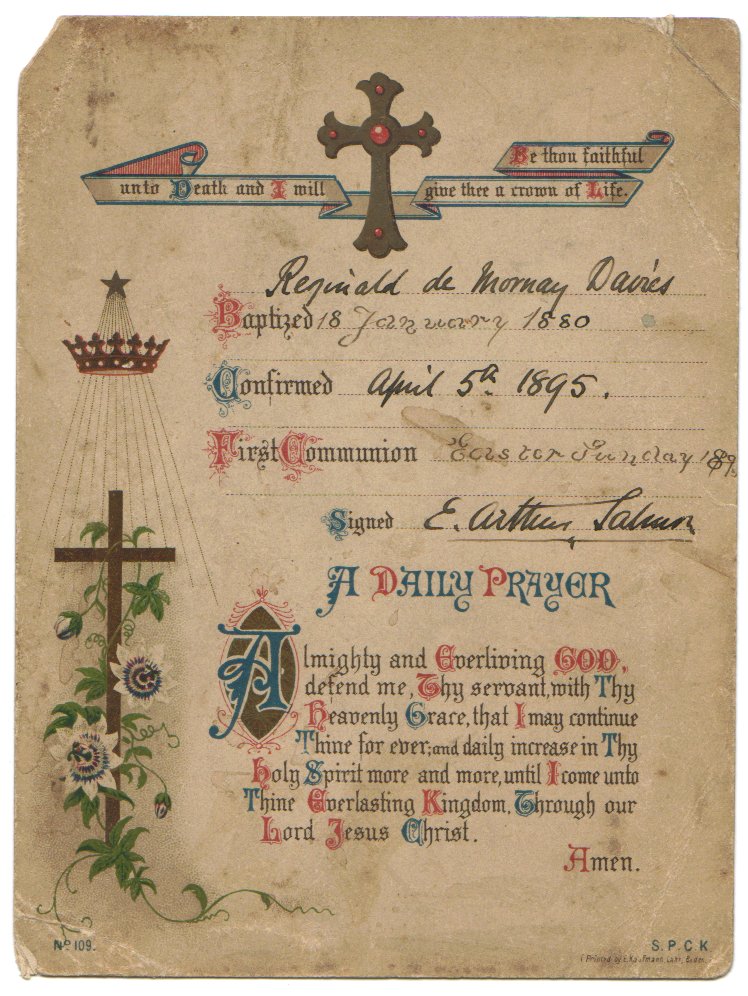 Be thou faithful
unto Death and I will give thee a crown of Life.
Reginald de Mornay Davies
Baptized 18 January 1880
Confirmed April 5th 1895.
First Communion Easter Sunday 189
Signed E. Arthur Salmon
A DAILY PRAYER
Almighty and Everliving GOD,
defend me, Thy servant, with Thy
Heavenly Grace, that I may continue
Thine for ever; and daily increase in Thy
Holy Spirit more and more, until I come unto
Thine Everlasting Kingdom, Through our
Lord Jesus Christ.
Amen.
No 109.
S. P. C. K
Printed by E. Kaufmann, Lahr, Baden.